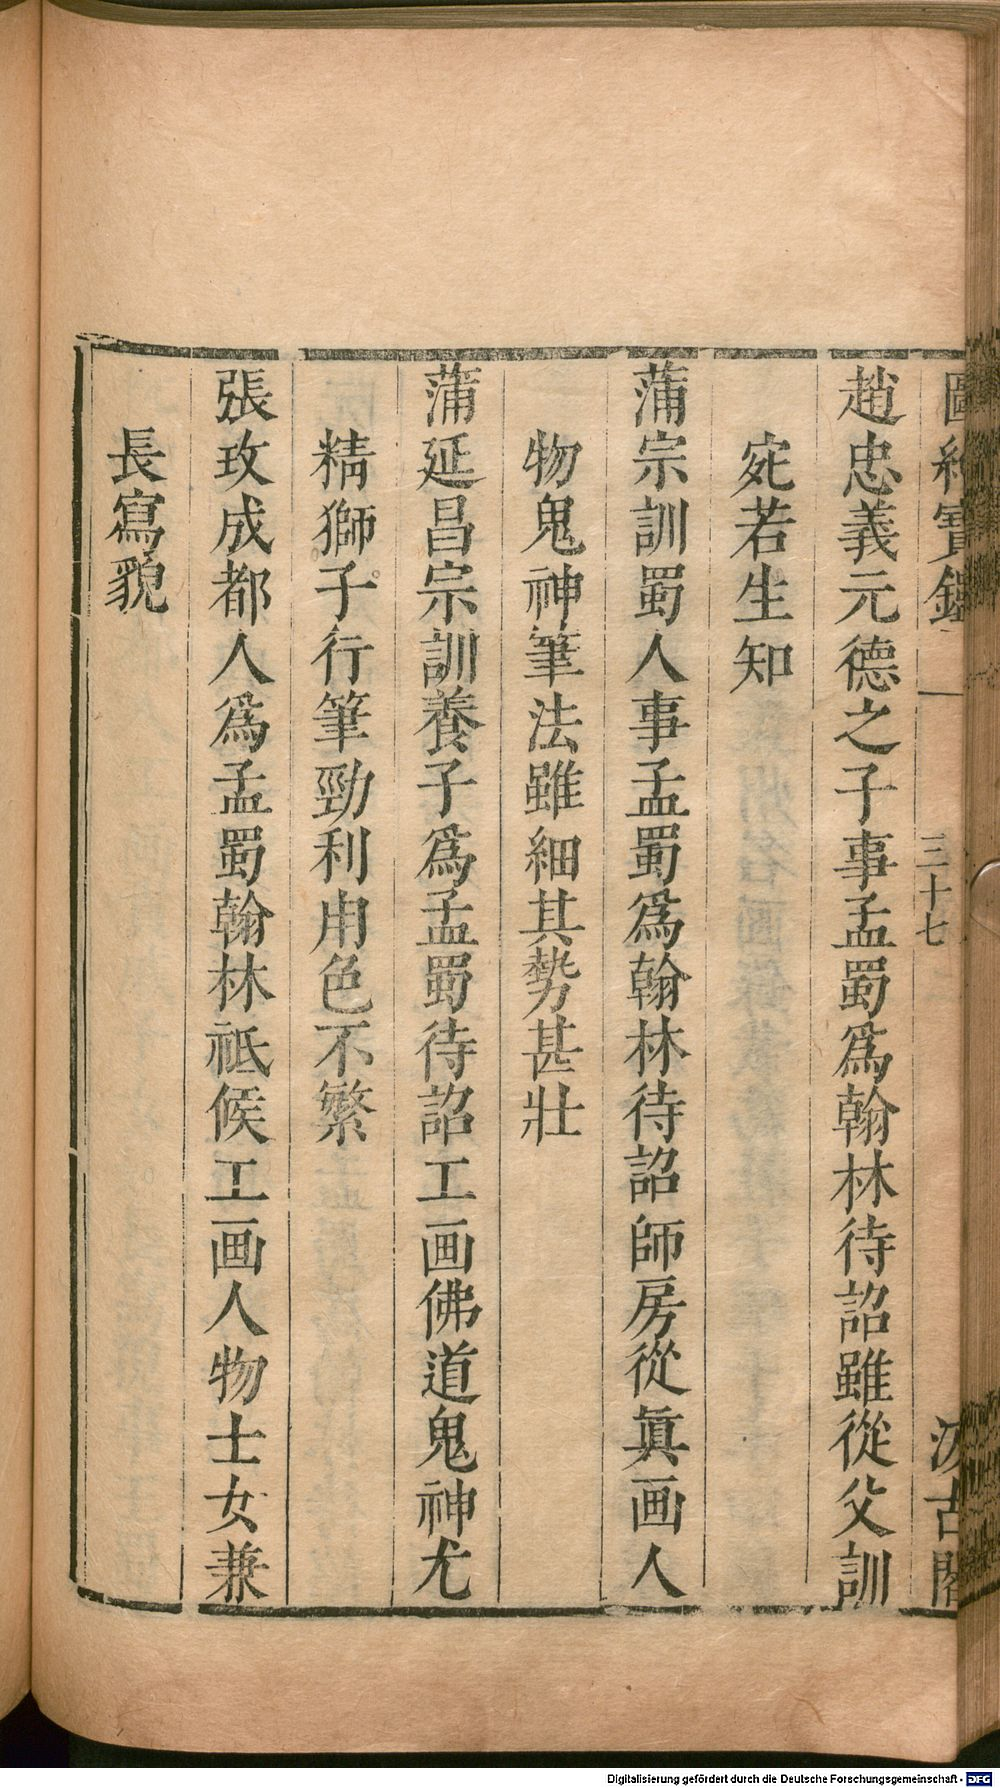 圖繪寶鑑
三十七
汲古閣
趙忠義元德之子事孟蜀爲翰林待詔雖從父訓
宛若生知
蒲宗訓蜀人事孟蜀爲翰林待詔師房從眞画人
物鬼神筆法雖細其勢甚壯
蒲延昌宗訓養子爲孟蜀待詔工画佛道鬼神尤
精獅子行筆勁利用色不繁
張玫成都人爲孟蜀翰林祗候工画人物士女兼
長寫貌
Digitalisierung gefördert durch die Deutsche Forschungsgemeinschaft - DFG